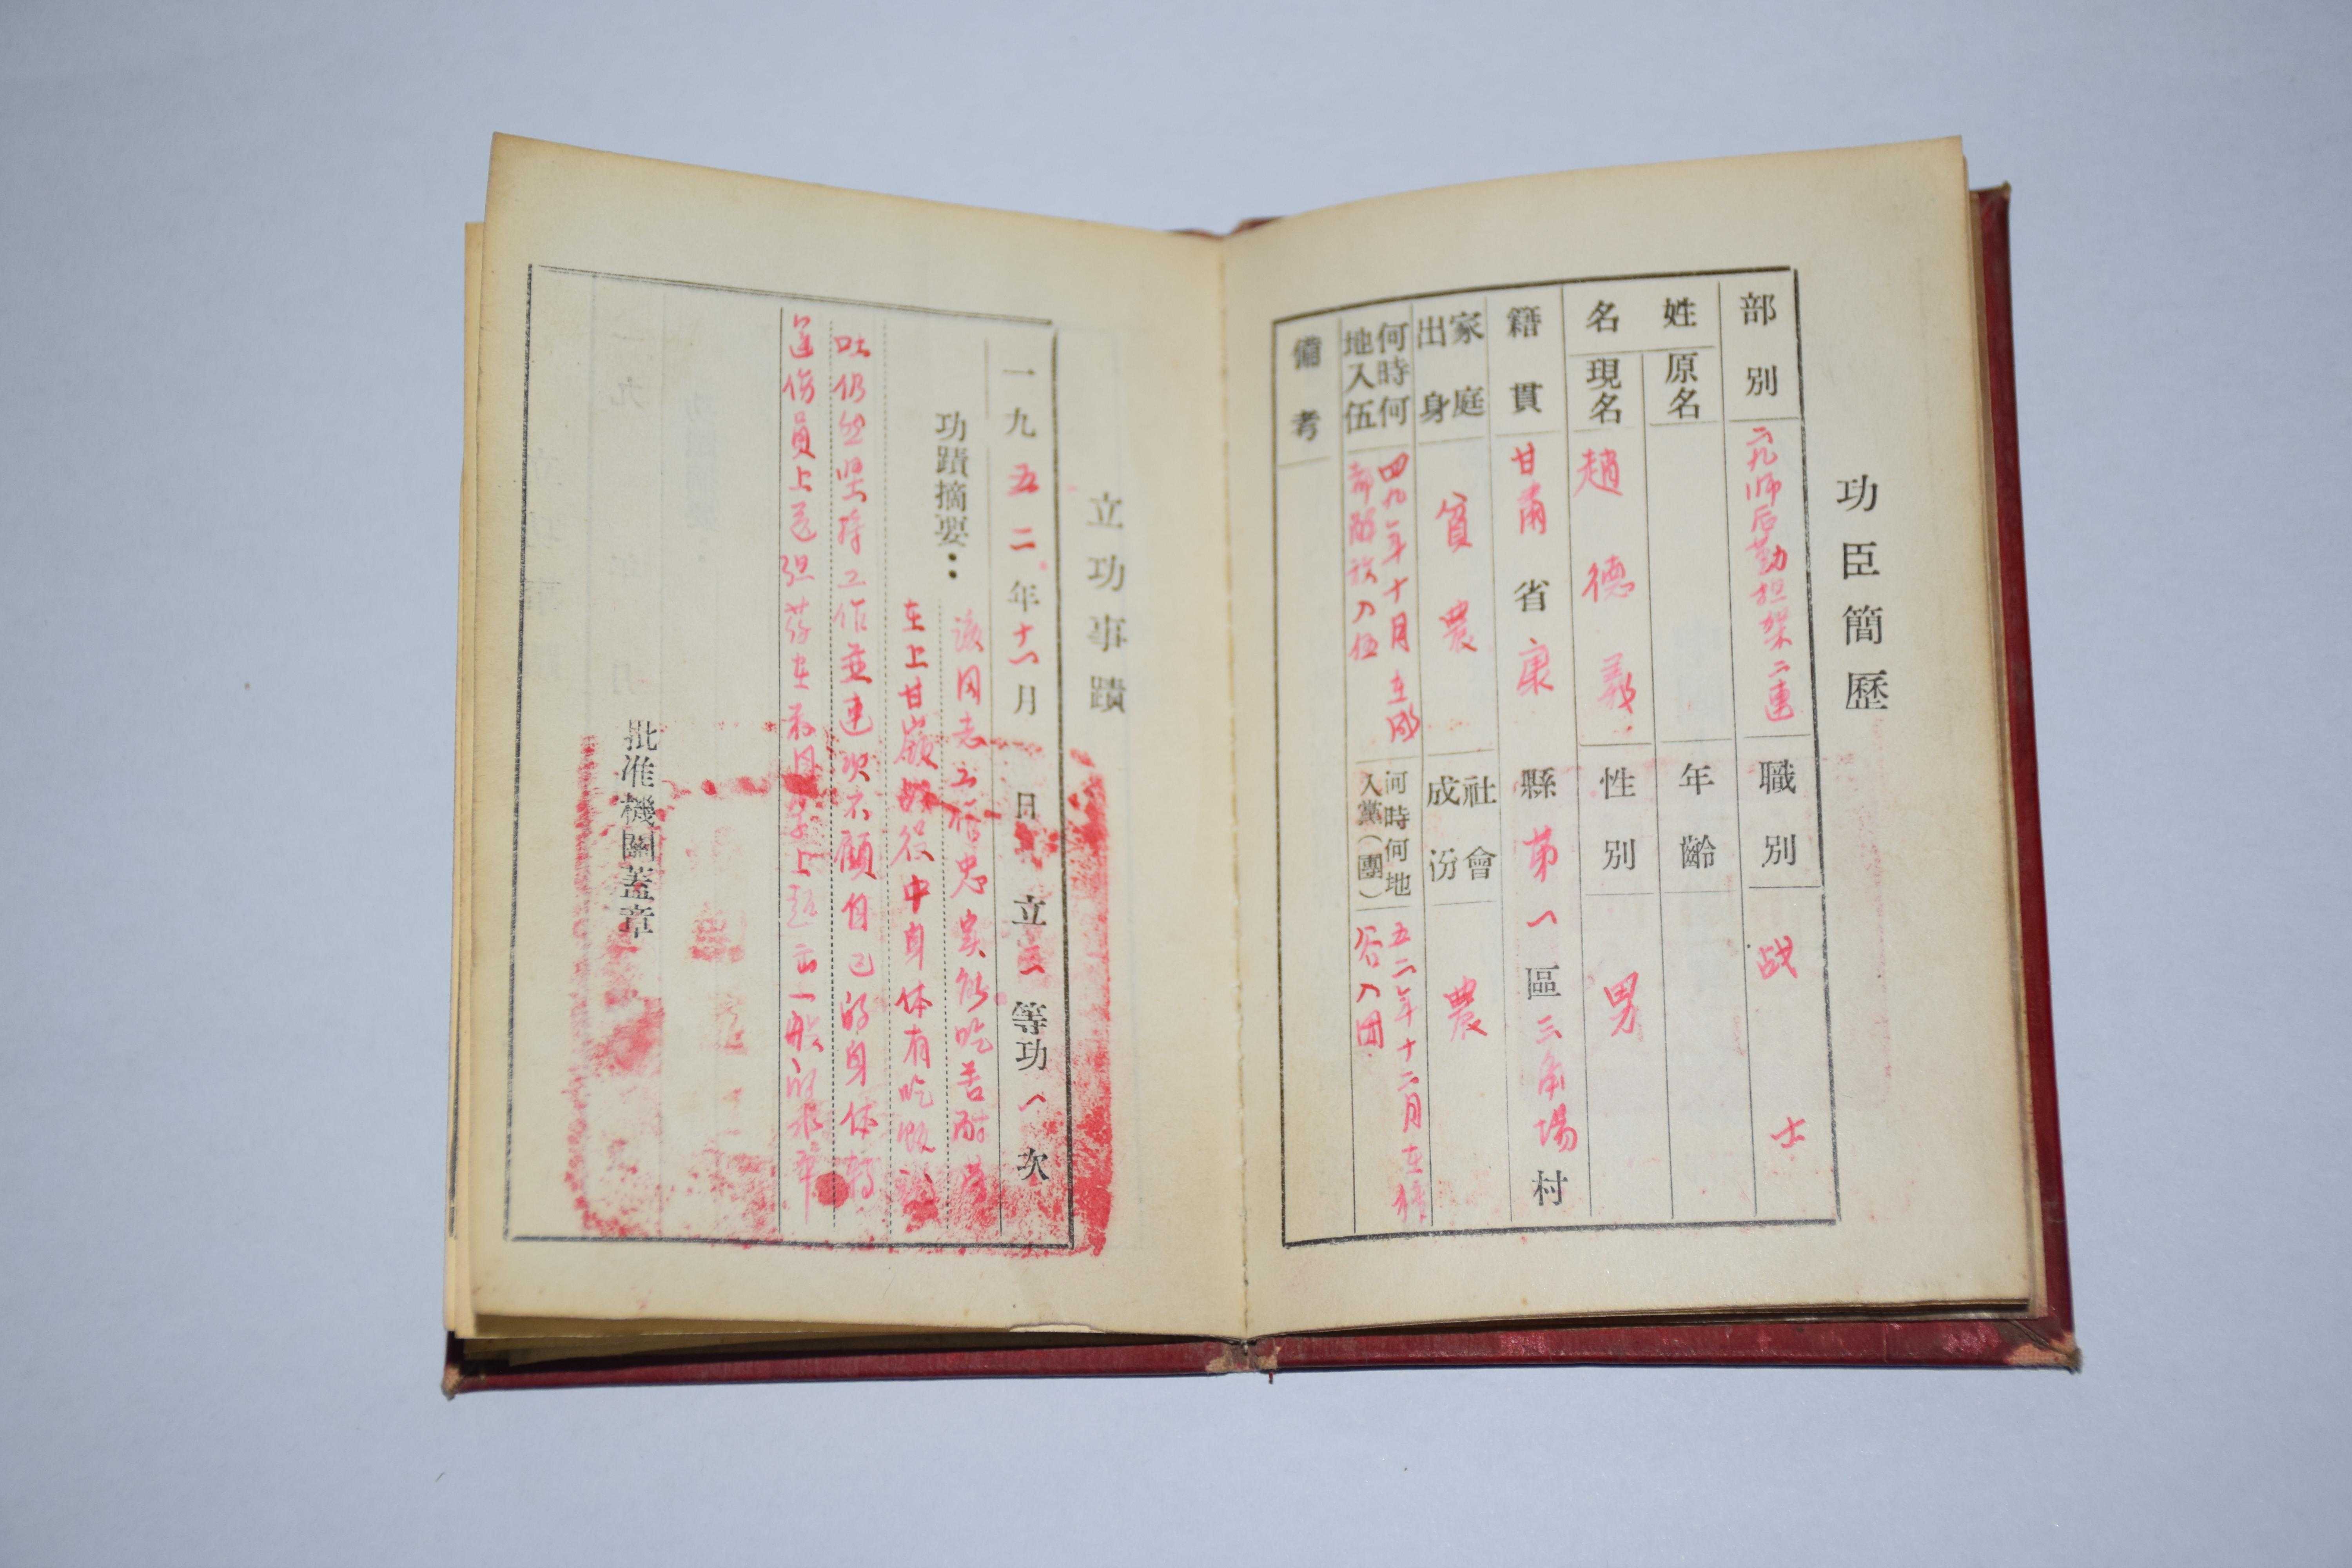 功臣簡歷
部別 二九师后勤担架二連 職別 战士
姓名 原名 年齡
現名 趙德義 性別 男
籍貫 甘肅省康縣第一區三角場村
家庭出身 貧農 社會成份 農
何時何地入伍 四九年十月在成都解放入伍 何時何地入黨(團) 五二年十二月在 谷入团
備考
立功事蹟
一九五二年十一月 日 立三等功一次
功蹟摘要：该同志工作忠实能吃苦耐劳
在上甘嶺战役中身体有吃飯
吐仍然坚持工作並連次不顧自己的身体轉
运伤员上送担药在 上 一般的
批准機關蓋章